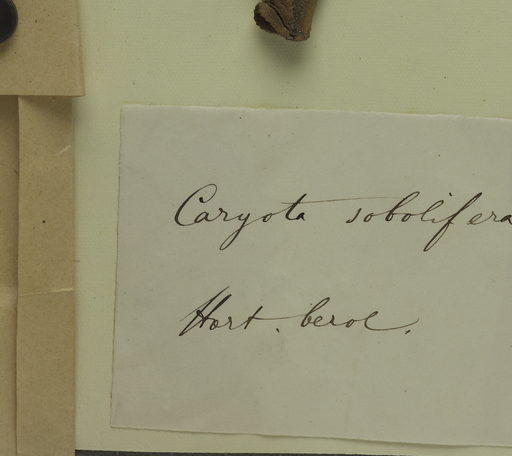 Caryota sobolifera
Hort. berol.